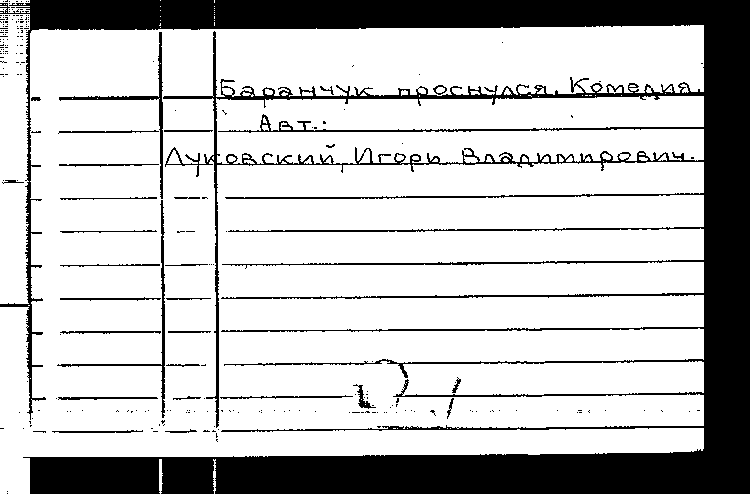 Баранчук проснулся. Комедия.
Авт.:
Луковский, Игорь Владимирович.